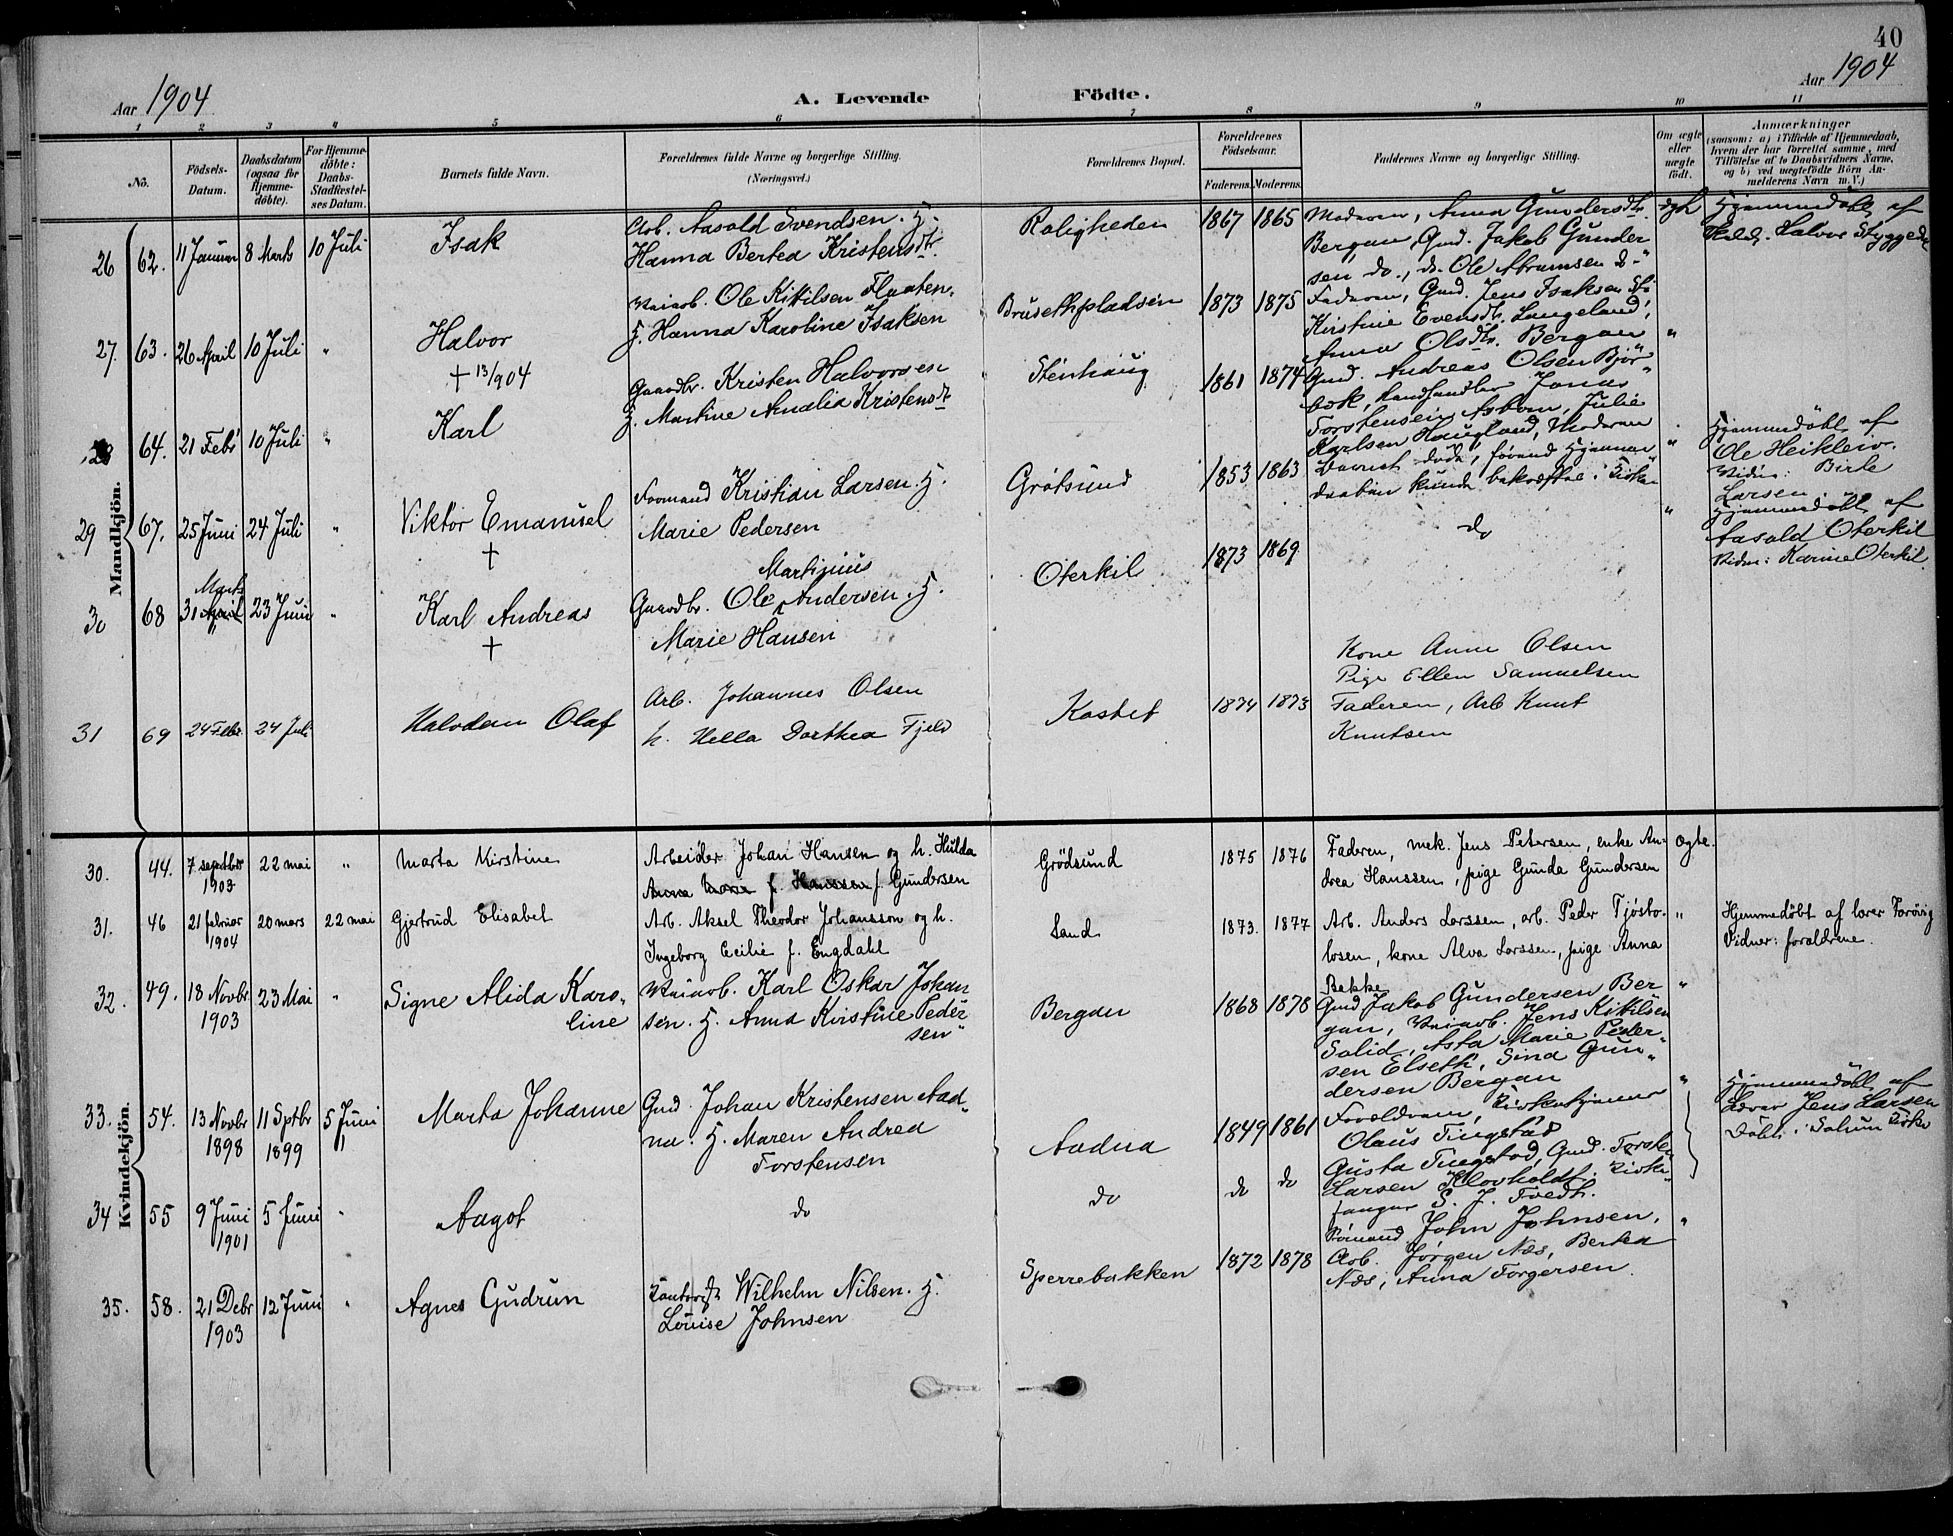 40
Aar 1904
A. Levende Födte.
Aar 1904
1 2 3 4 5 6 7 8 9 10 11
No.
Födsels-Datum.
Daabsdatum (ogsaa for Hjemme-döbte).
For Hjemme-döbte: Daabs-Stadfæstel-ses Datum.
Barnets fulde Navn.
Forældrenes fulde Navne og borgerlige Stilling.
(Næringsvei.)
Forældrenes Bopæl.
Forældrenes Födselsaar.
Faderens. Moderens.
Faddernes Navne og borgerlige Stilling.
Om ægte eller uægte födt.
Anmærkninger
(saasom: a) i Tilfælde af Hjemmedaab, hvem der har forrettet samme, med Tilföielse af to Daabsvidners Navne, og b) ved uægtefödte Börn An-melderens Navn m. V.)
Mandkjön.
26 62. 11 Januar 8 Marts 10 Juli Isak
Arb. Aasold Svendsen. H.
Hanna Bertea Kristensdt.
Roligheden 1867 1865
Moderen, Anna Gundersdtr.
Bergan, Gmd. Jakob Gunder
sen do., do. Ole Abramsen do
ægte
Hjemmedöbt af
Halvor Styggedal
27. 63. 26 April 10 Juli " Halvor
+ 13/904
Ole Kittilsen Flaaten.
H. Hanna Karoline Isaksen
Brusethpladsen 1873 1875
Faderen, Gmd. Jens Isaksen
Kirstine Evensdt. Langeland,
Anna Olsdtr. Bergan
"
28 64. 21 Febr 10 Juli " Karl
Gaardbr. Kristen Halvorsen
H. Martine Amalia Kristensdt
Stenhaug 1861 1874
Gmd. Andreas Olsen Björ
bæk, Landhandler Jonas
Torstensen Asbom, Julie
Karlsen Haugland, Moderen
"
29 67. 25 Juni 24 Juli " Viktor Emanuel
+
Formand Kristian Larsen. H.
Marie Pedersen
Grötsund 1853 1863
Barnet döde, förend Hjemme
daaben kunde bekræftes i Kirken
"
Hjemmedöbt af
Ole Heikleiv.
Vidn: Birte
Larsen.
30 68 31 April Marts 23 Juni " Karl Andreas
+
Martinius
Gaardbr. Ole Andersen. H.
Marie Hansen
Oterkil 1873 1869
do
"
Hjemmedöbt af
Aasold Oterkil
Vidn: Karine Oterkil
31 69 24 Febr 24 Juli Halvdan Olaf
Arb. Johannes Olsen
h. Hella Dorthea Fjeld
Kastet 1874 1873
Kone Anne Olsen
Pige Ellen Samuelsen
Faderen, Arb Knut
Knutsen
Kvindekjön.
30. 44. 7 septbr 1903 22 mai " Marta Kirstine
Arbeider Johan Hansen og h. Hulda
Anna Marie f. Hanssen f. Gundersen
Grödsund 1875 1876
Faderen, mek. Jens Petersen, enke An-
drea Hanssen, pige Gunda Gundersen
Ægte.
31. 46 21 februar 1904 20 mars 22 mai Gjertrud Elisabet
Arb. Aksel Theodor Johansson og h.
Ingeborg Cecilie f. Engdahl
Sand 1873. 1877
Arb. Anders Larssen, arb. Peder Tjösto-
losen, kone Alva Larssen, pige Anna
Bekke
"
Hjemmedöbt af lærer Farövig
Vidner: forældrene.
32. 49. 18 Novbr 1903 23 Mai " Signe Alida Karo-
line
Karl Oskar Johan
sen. H. Anna Kirstine Peder
sen
Bergan 1868 1878
Gmd Jakob Gundersen Ber
gan, Jens Kittilsen
Solid, Asta Marie Peder-
sen Elseth, Sina Gun-
dersen Bergan
"
33. 54. 13 Novbr 1898 11 Sptbr 1899 5 Juni Marta Johanne
Gmd. Johan Kristensen Aad-
na. H. Maren Andrea
Torstensen
Aadna 1849 1861
Forældrene, Kirketjener
Olaus Tingstad
Gusta Tingstad, Gmd. Torsten
Larsen Klovholdt. Kirke-
sanger S. J. Tvedt.
"
Hjemmedöbt af
Lærer Jens Larsen
Döbt i Solum Kirke
34 55 9 Juni 1901 5 Juni " Aagot
do
do do do
35. 58. 21 Debr 1903 12 Juni " Agnes Gudrun
Wilhelm Nilsen. H.
Louise Johnsen
Sperrebakken 1872 1878
Sömand John Johnsen,
Arb. Jörgen Næs, Bertea
Næs, Anna Torgersen.
"